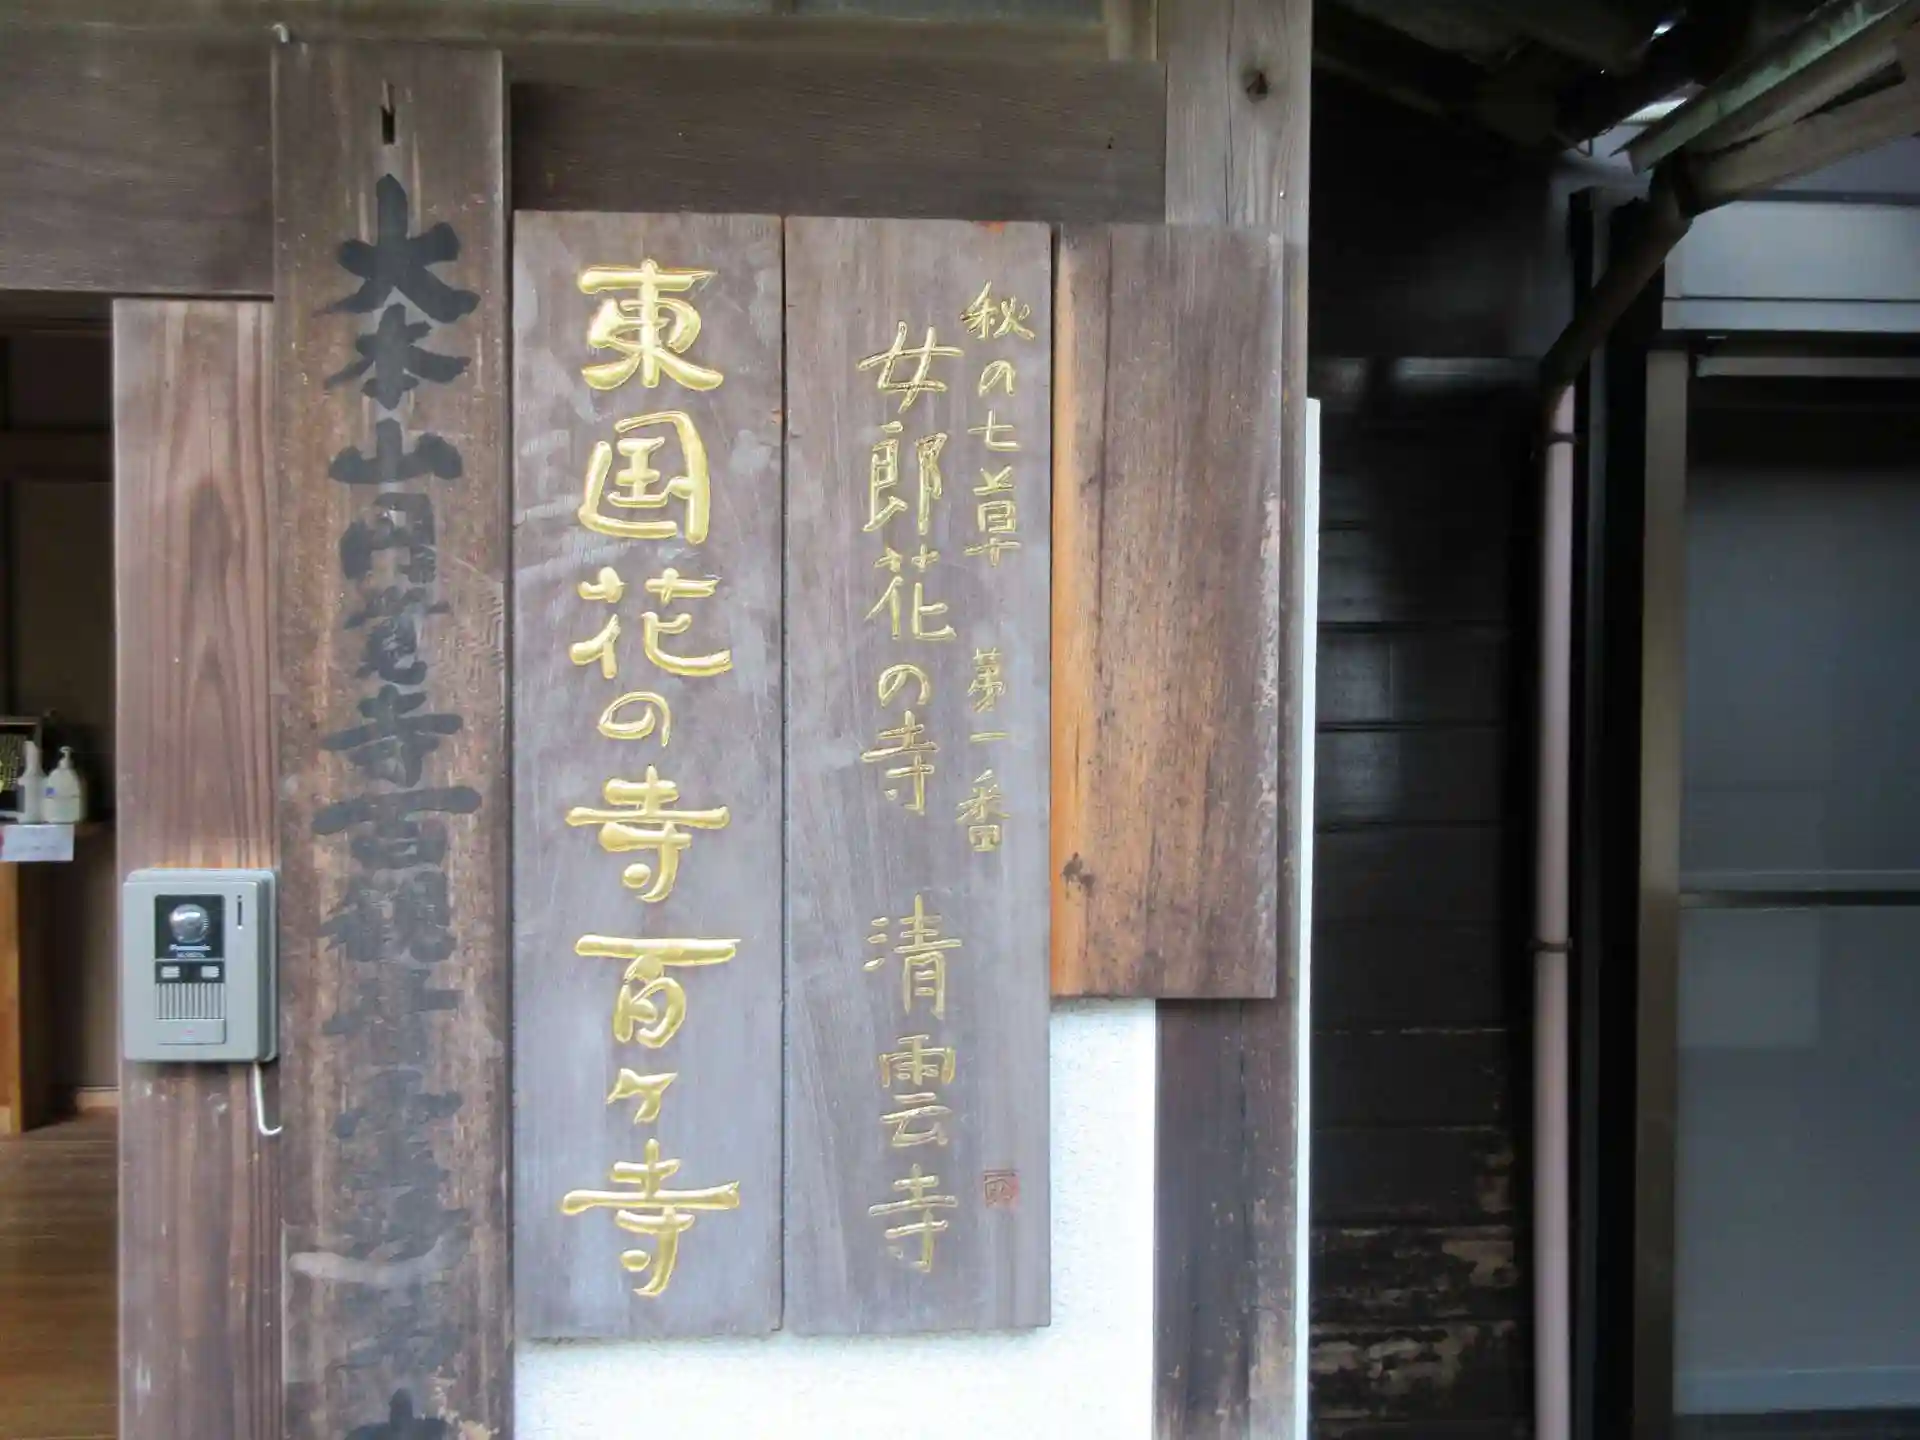 秋の七草 第一番
女郎花の寺 清雲寺
東国花の寺百ヶ寺
大本山円覚寺百観音霊場
Panasonic